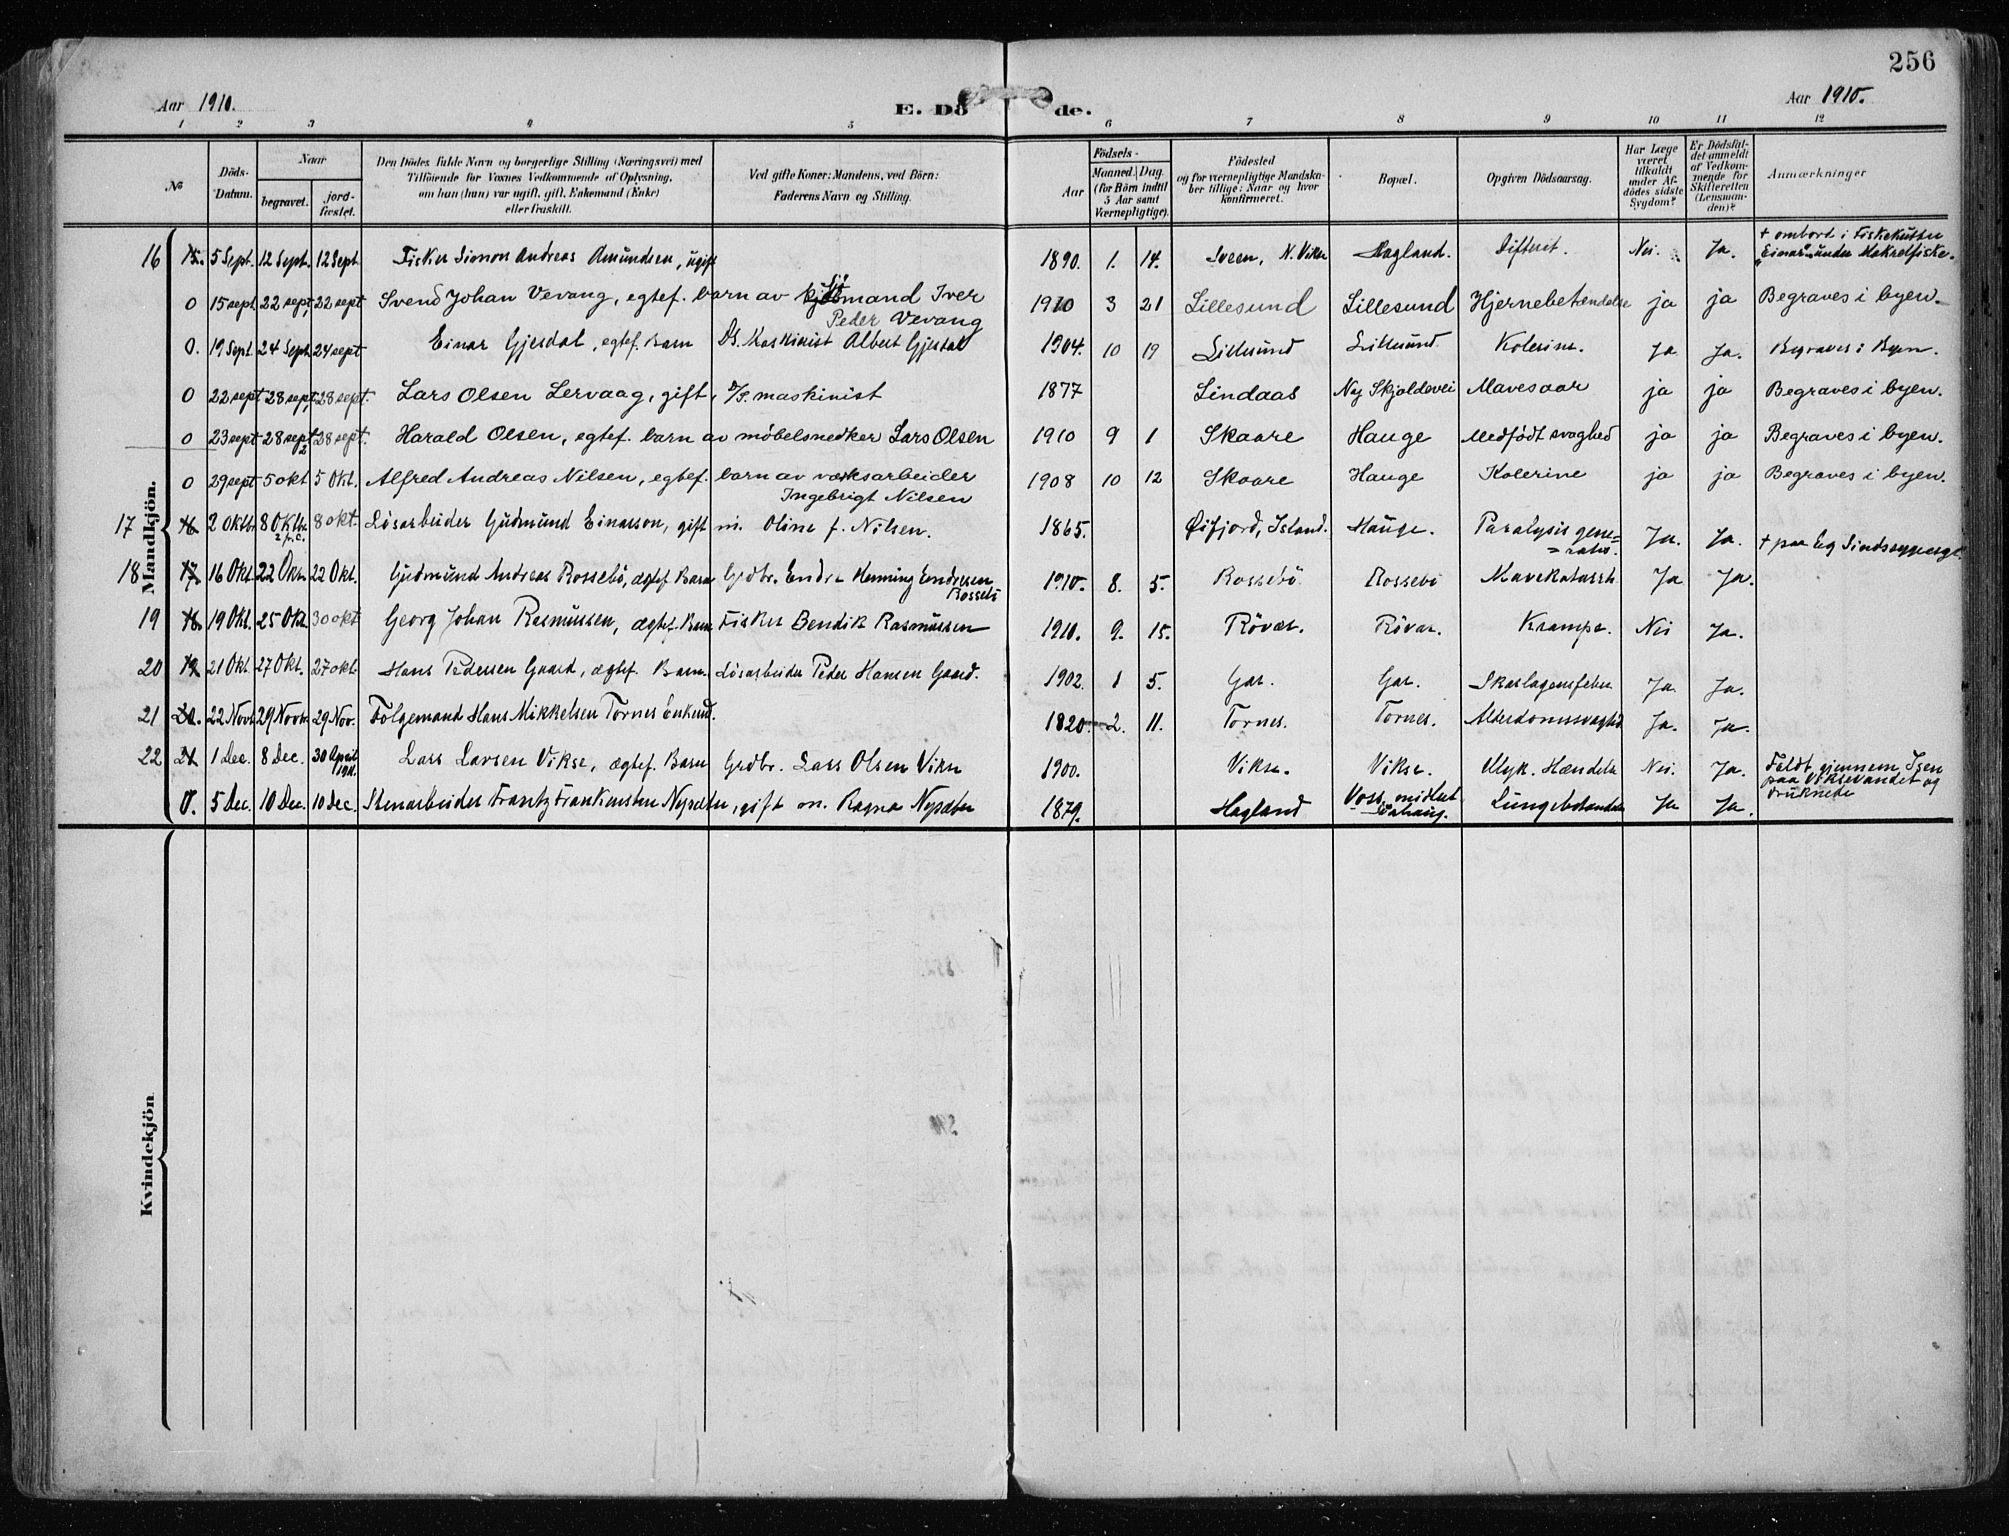 256
Aar 1910. E. Dö de. Aar 1910.
1 2 3 4 5 6 7 8 9 10 11 12
No
Döds-Datum.
Naar
begravet.
jord-fæstet.
Den Dödes fulde Navn og borgerlige Stilling (Næringsvei) med
Tilföiende for Voxnes Vedkommende af Oplysning,
om han (hun) var ugift, gift, Enkemand (Enke)
eller fraskilt.
Ved gifte Koner: Mandens, ved Börn:
Faderens Navn og Stilling.
Födsels-
Aar
Maaned. Dag.
(for Börn indtil
5 Aar samt
Værnepligtige).
Födested
og for værnepligtige Mandska-
ber tillige: Naar og hvor
konfirmeret.
Bopæl.
Opgiven Dödsaarsag.
Har Læge
været
tilkaldt
under Af-
dödes sidste
Sygdom?
Er Dödsfal-
det anmeldt
af Vedkom-
mende for
Skifteretten
(Lensman-
den)?
Anmærkninger
Mandkjön.
16 15. 5 Sept. 12 Sept. 12 Sept. Fisker Simon Andreas Amundsen, ugift 1890. 1. 14. Sveen, N. Vikse Hagland. Difterit. Nei. Ja. + ombord i Fiskekutter
"Einar" under Makrelfiske.
0 15 sept 22 sept, 22 sept Svend Johan Vevang, egtef. barn av mand Iver
Peder Vevang 1910 3 21 Lillesund Lillesund Hjernebetændelse ja ja Begraves i byen.
0. 19 Sept. 24 Sept. 24 sept Einar Gjesdal, egtef. Barn D.S. Maskinist Albert Gjesdal 1904. 10 19 Lillesund Lillesund Kolerine. Ja Ja. Begraves i Byen.
0 22 sept. 28 sept, 28 sept. Lars Olsen Lervaag, gift, D/S. maskinist 1877 Lindaas Ny Skjoldevei Mavesaar ja ja Begraves i byen.
0 23 sept 28 sept 28 sept. Harald Olsen, egtef. barn av möbelsnedker Lars Olsen 1910 9 1 Skaare Hauge Medfödt svaghed ja ja Begraves i byen.
0 29 sept 5 okt 5 Okt. Alfred Andreas Nilsen, egtef. barn av værksarbeider
Ingebrigt Nilsen 1908 10 12 Skaare Hauge Kolerine ja ja Begraves i byen.
17 16 2 Oktbr 8 Oktbr 8 okt. Lösarbeider Gudmund Einarsson, gift m. Oline f. Nilsen. 1865. Öifjord, Island. Hauge. Paralysis gene=
=ralis. Ja. Ja. + paa Eg Sindssygeasyl
18 17 16 Okt. 22 Okt. 22 Okt. Gudmund Andreas Rossebö, ægtef. Barn Grdbr. Endre Henning Endresen
Rossebö 1910. 8. 5. Rossebö Rossebö Mavekatarrh Ja Ja.
19 18 19 Okt. 25 Okt. 30 okt Georg Johan Rasmussen, ægtef. Barn Fisker Bendik Rasmussen 1910. 9. 15. Rövær. Rövær. Krampe. Nei Ja.
20 19 21 Okt. 27 Okt. 27 okt. Hans Pedersen Gaard, ægtef. Barn. Lösarbeider Peder Hansen Gaard. 1902. 1 5. Gar. Gar. Skarlagensfeber Ja Ja.
21 20. 22 Novb 29 Novbr 29 Nov. Fölgemand Hans Mikkelsen Tornes Enkemd. 1820 2. 11. Tornes. Tornes. Alderdomssvaghed Ja. Ja.
22 21 1 Dec. 8 Dec. 30 April
1911. Lars Larsen Vikse, ægtef. Barn Grdbr. Lars Olsen Vikse 1900. Vikse. Vikse. Ulyk. Hændelse Nei. Ja. Faldt gjennem Isen
paa Viksevandet og
druknede
0. 5 Dec. 10 Dec. 10 Dec. Stenarbeider Frantz Nysæter, gift m. Ragna Nysæter 1879. Hagland Voss, midlert Lungebetændelse Ja Ja.
Kvindekjön